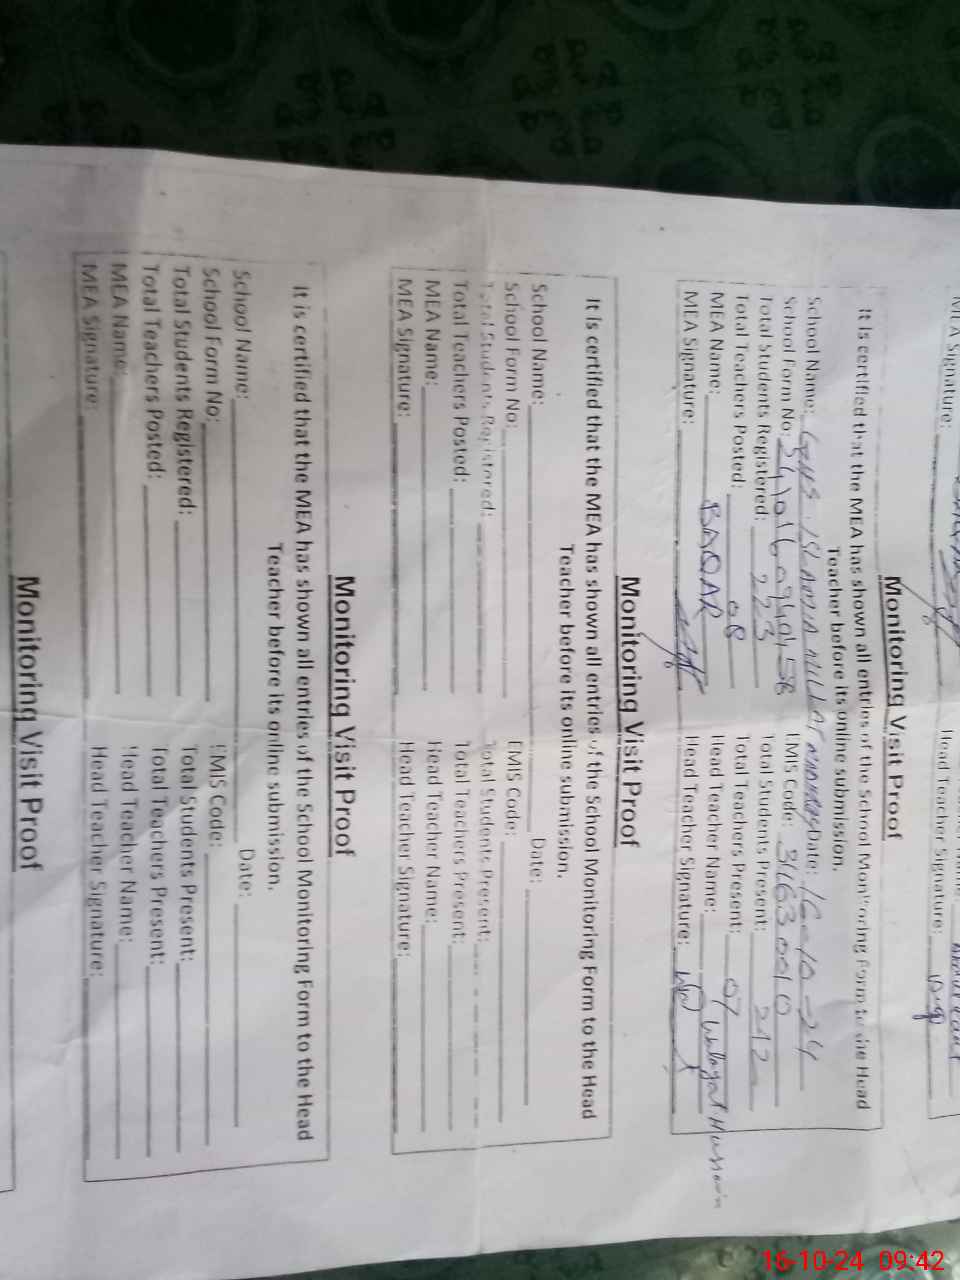 MEA Signature:
Head Teacher Signature:
Monitoring Visit Proof
It is certified that the MEA has shown all entries of the School Monitoring Form to the Head
Teacher before its online submission.
School Name: ISLAMIA Date: 16-10-24
School Form No: EMIS Code:
Total Students Registered: 223 Total Students Present: 212
Total Teachers Posted: 08 Total Teachers Present: 07
MEA Name: BAQAR Head Teacher Name: Hussain
MEA Signature: Head Teacher Signature:
Monitoring Visit Proof
It is certified that the MEA has shown all entries of the School Monitoring Form to the Head
Teacher before its online submission.
School Name: Date:
School Form No: EMIS Code:
Total Students Registered: Total Students Present:
Total Teachers Posted: Total Teachers Present:
MEA Name: Head Teacher Name:
MEA Signature: Head Teacher Signature:
Monitoring Visit Proof
It is certified that the MEA has shown all entries of the School Monitoring Form to the Head
Teacher before its online submission.
School Name: Date:
School Form No: EMIS Code:
Total Students Registered: Total Students Present:
Total Teachers Posted: Total Teachers Present:
MEA Name: Head Teacher Name:
MEA Signature: Head Teacher Signature:
Monitoring Visit Proof
16-10-24 09:42